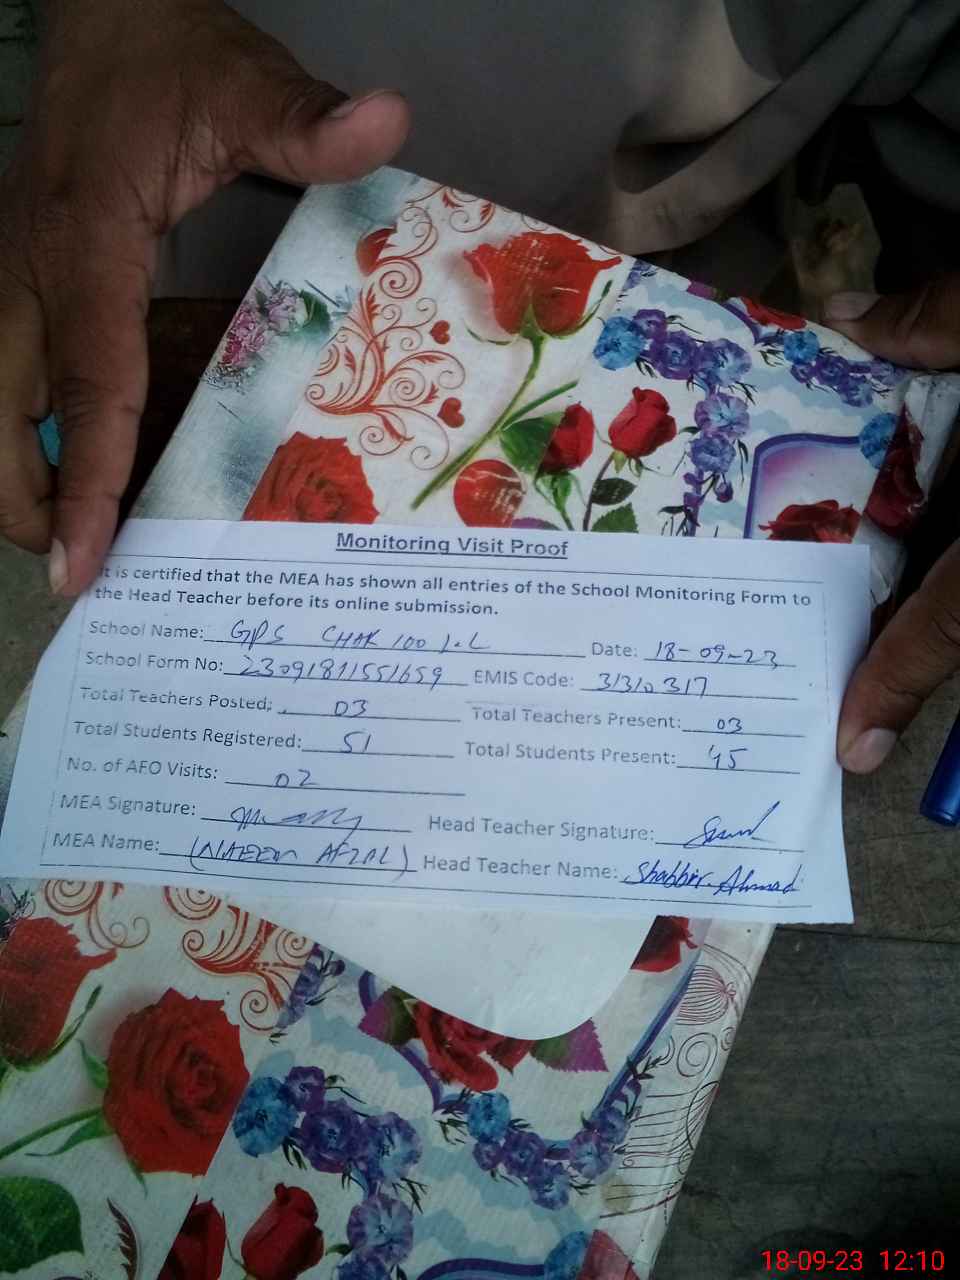 Monitoring Visit Proof
It is certified that the MEA has shown all entries of the School Monitoring Form to
the Head Teacher before its online submission.
School Name: GPS CHAK 100 1.L Date: 18-09-23
School Form No: 23091811551659 EMIS Code: 31310317
Total Teachers Posted: 03 Total Teachers Present: 03
Total Students Registered: 51 Total Students Present: 45
No. of AFO Visits: 02
MEA Signature: Head Teacher Signature:
MEA Name: (NAEEM AFZAL) Head Teacher Name: Shabbir Ahmad
18-09-23 12:10